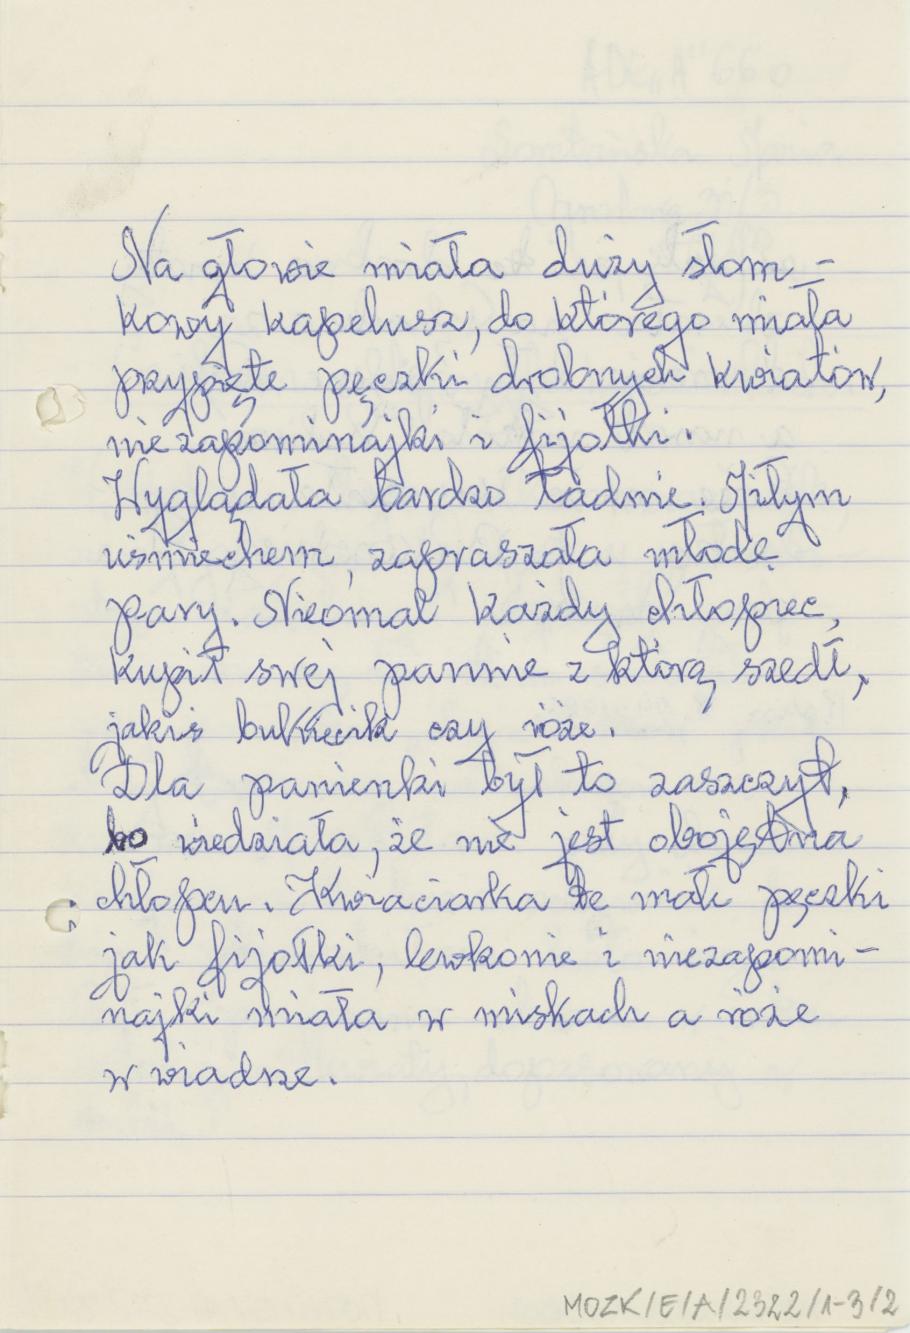 Na głowie miała duży słom-
kowy kapelusz, do którego miała
przypięte pęczki drobnych kwiatów,
niezapominajki i fijołki.
Wyglądała bardzo ładnie. Miłym
uśmiechem, zapraszała młodę
pary. Nieomal każdy chłopiec,
kupił swej pannie z którą szedł,
jakiś bukiecik czy róże.
Dla panienki był to zaszczyt,
bo wiedziała, że nie jest obojętna
chłopcu. Kwiaciarka te małe pęczki
jak fijołki, lewkonie i niezapomi-
najki miała w miskach a róże
w wiadrze.
MOZK/E/A/2322/1-3/2